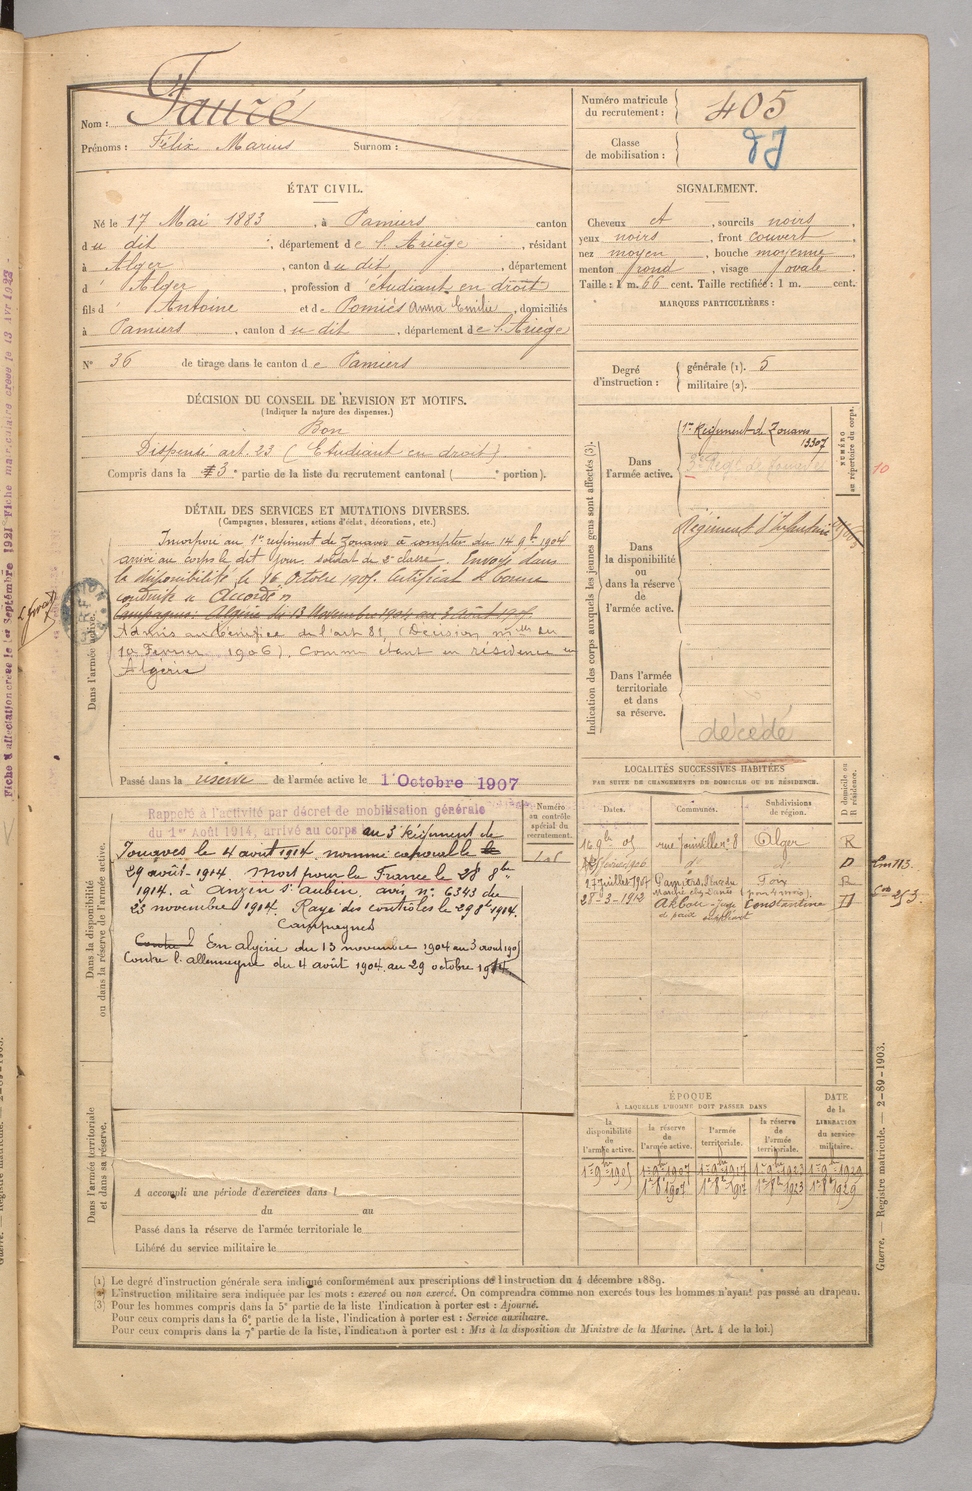 Nom : Fauré
Prénoms : Félix Marius Surnom :
Numéro matricule du recrutement : 405
Classe de mobilisation :
ÉTAT CIVIL.
Né le 17 Mai 1883, à Pamiers canton
du dit, département de l'Ariège, résidant
à Alger, canton du dit, département
d'Alger, profession d'étudiant en droit
fils d'Antoine et de Pomiès Anna Emilie, domiciliés
à Pamiers, canton du dit, département de l'Ariège
N° 36 de tirage dans le canton de Pamiers
SIGNALEMENT.
Cheveux et, sourcils noirs
yeux noirs, front couvert,
nez moyen, bouche moyenne,
menton rond, visage ovale
Taille : 1 m. 66 cent. Taille rectifiée : 1 m. cent.
MARQUES PARTICULIÈRES :
Degré d'instruction : générale (1). 5
militaire (2).
DÉCISION DU CONSEIL DE REVISION ET MOTIFS.
(Indiquer la nature des dispenses.)
Bon
Dispensé art. 23 (Etudiant en droit)
Compris dans la 3e partie de la liste du recrutement cantonal ( e portion).
DÉTAIL DES SERVICES ET MUTATIONS DIVERSES.
(Campagnes, blessures, actions d'éclat, décorations, etc.)
Dans l'armée active.
Incorporé au 1er régiment de Zouaves à compter du 14 9bre 1904
arrivé au corps le dit jour, soldat de 2e classe. Envoyé dans
la disponibilité le 16 Octobre 1905. Certificat de bonne
conduite « Accordé »
Campagnes : Algérie du 13 Novembre 1904 au 3 Août 1905.
Admis au bénéfice de l'art 81, (Décision mlle du
10 Février 1906). Comme étant en résidence en
Algérie
Passé dans la réserve de l'armée active le 1 Octobre 1907
Dans la disponibilité ou dans la réserve de l'armée active.
Rappelé à l'activité par décret de mobilisation générale
du 1er Août 1914, arrivé au corps au 3e Régiment de
Zouaves le 4 août 1914. nommé caporal le
29 août 1914. Mort pour la France le 28 8bre
1914. à Anzin St Aubin. avis n° 6343 du
23 novembre 1914. Rayé des contrôles le 29 8bre 1914.
Campagnes
Contre l' En algérie du 13 novembre 1904 au 3 aout 1905
Contre l'allemagne du 4 août 1904 au 29 octobre 1914
Numéro au contrôle spécial du recrutement.
Dans l'armée territoriale et dans sa réserve.
A accompli une période d'exercices dans l
du au
Passé dans la réserve de l'armée territoriale le
Libéré du service militaire le
Indication des corps auxquels les jeunes gens sont affectés (3).
NUMÉRO au répertoire du corps.
Dans l'armée active.
1er Régiment de Zouaves
13307
10
Dans la disponibilité ou dans la réserve de l'armée active.
Régiment d'Infanterie
Dans l'armée territoriale et dans sa réserve.
décédé
LOCALITÉS SUCCESSIVES HABITÉES
PAR SUITE DE CHANGEMENTS DE DOMICILE OU DE RÉSIDENCE.
D domicile ou R résidence.
Dates. Communes. Subdivisions de région.
16 9bre 05 rue Joinville n° 8 Alger R
D
27 Juillet 1907 Pamiers, Foix R
28-3-1912 Akbou - juge Constantine D
de paix suppléant
ÉPOQUE
À LAQUELLE L'HOMME DOIT PASSER DANS
DATE de la LIBÉRATION du service militaire.
la disponibilité de l'armée active. la réserve de l'armée active. l'armée territoriale. la réserve de l'armée territoriale.
1er 9bre 1905 1er 9bre 1907 1er 9bre 1917 1er 9bre 1923 1er 9bre 1929
1er 8bre 1907 1er 8bre 1917 1er 8bre 1923 1er 8bre 1929
(1) Le degré d'instruction générale sera indiqué conformément aux prescriptions de l'instruction du 4 décembre 1889.
(2) L'instruction militaire sera indiquée par les mots : exercé ou non exercé. On comprendra comme non exercés tous les hommes n'ayant pas passé au drapeau.
(3) Pour les hommes compris dans la 5e partie de la liste l'indication à porter est : Ajourné.
Pour ceux compris dans la 6e partie de la liste, l'indication à porter est : Service auxiliaire.
Pour ceux compris dans la 7e partie de la liste, l'indication à porter est : Mis à la disposition du Ministre de la Marine. (Art. 4 de la loi.)
Guerre. Registre matricule. — 2-89-1903.